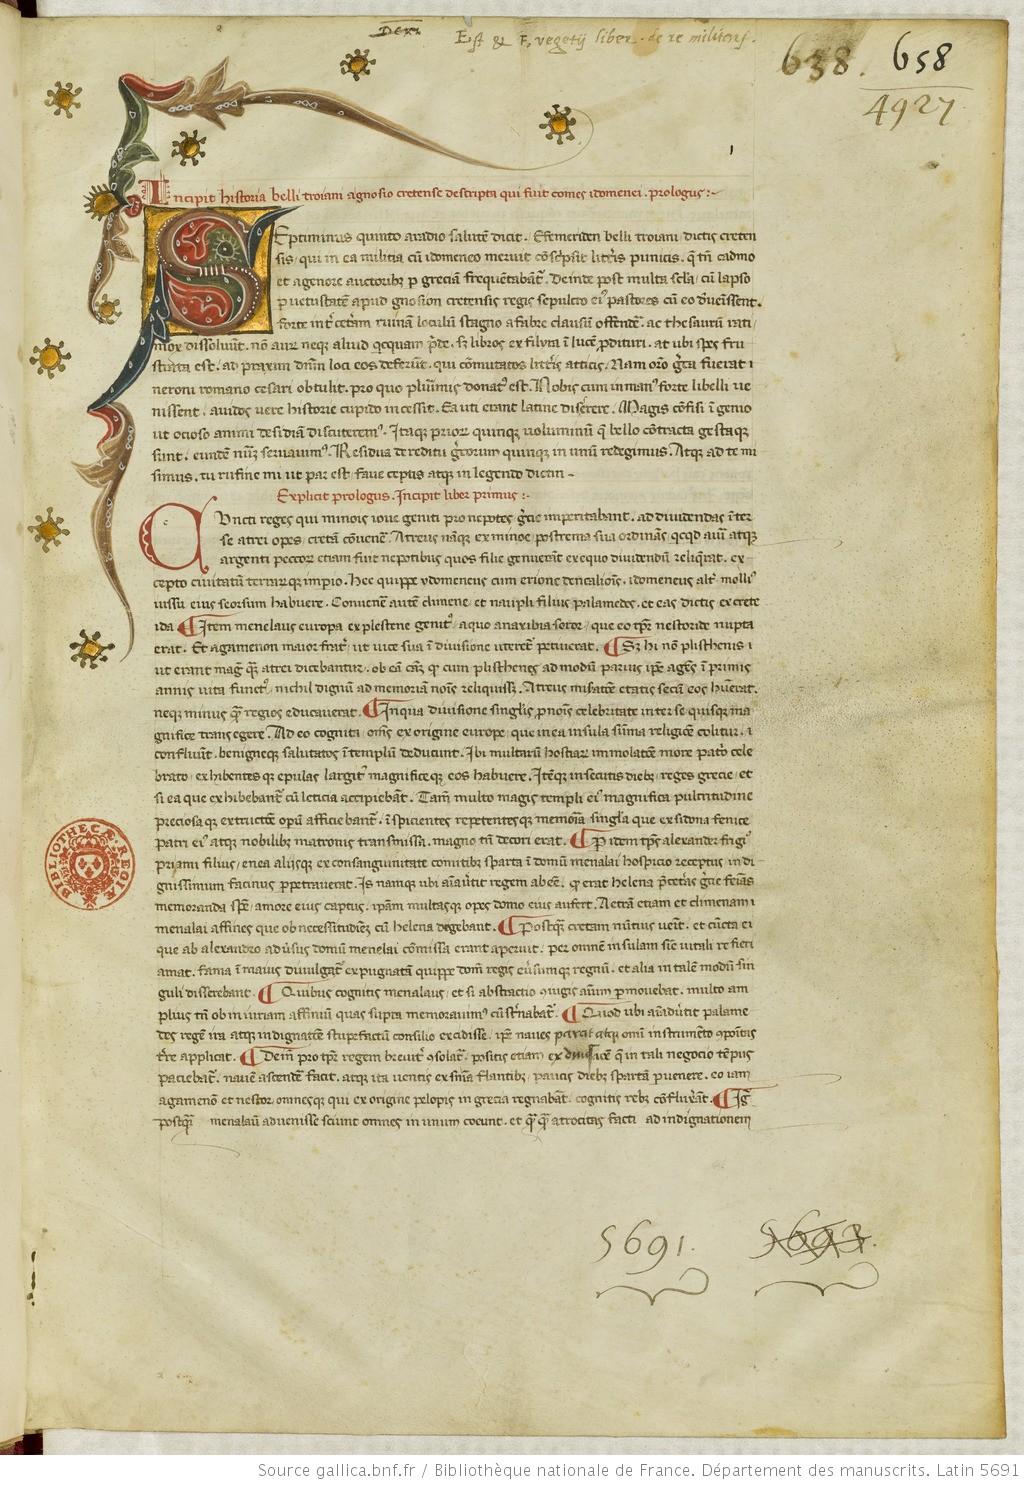 Est & F. vegetij liber. de re militari.
638. 658
4927
Incipit historia belli troiani agnosio cretense descripta qui fuit comes idomenei. prologus:~
Septiminus quinto aradio salutē dicit. Efemeriden belli troiani dictis creten
sis, qui in ea militia cū idomeneo meruit cōscpsit litt̄is punicis. q̄ tn̄ cadmo
et agenore auctoribꝫ p greciā frequētabāt. Deinde post multa sc̄la, cū lapso
p uetustatē apud gnosion cretensis regis sepulcro ei᾽ pastores cū eo deuēissent.
forte int̄ cet̄am ruinā loculū stagno afabre clausū offendē. ac thesaurū rati
mox dissoluūt. nō aurꝫ neqꝫ aliud qcquam p̄de. sꝫ libros ex filyra ī lucē prodituri. at ubi spes fru
strata est. ad praxim dn̄m loci eos deferūt. qui cōmutatos litt̄is atticis. Nam or̄o gr̄ca fuerat i
neroni romano cesari obtulit. pro quo plurimis donat᾽ est. Nobis cum in man᾽ forte libelli ue
nissent. auidos uere historie cupido incessit. Ea uti erant latine disērere. Magis cōfisi ī genio
ut ocioso animi desidiā discuterem᾽. Itaqꝫ priorꝫ quinqꝫ uoluminū q̄ bello cōtracta gestaqꝫ
sunt. eundē nūꝫ seruauim᾽. Residua de reditu gr̄corum quinqꝫ in unū redegimus. Atqꝫ ad te mi
simus. tu rufine mi ut par est. faue ceptis atqꝫ in legendo dictin ~
Explicit prologus. Incipit liber primus:~
Cuncti reges qui minois ioue geniti pronepotes gr̄cie imperitabant. ad diuidendas īter
se atrei opes cretā cōuenē. Atreus nāqꝫ ex minoe postrema sua ordinās qcqd auri atqꝫ
argenti peccorꝫ etiam fuit nepotibus quos filie genuerāt ex equo diuidendū reliqrat. ex
cepto ciuitatū terrarꝫqꝫ impio. Hec quippe ydomeneus cum erione dencalionis. idomeneus alt̄ molli᾽
iussu eius seorsum habuere. Conuenē autē climene et naupli filius palamedes. et eas dictis ex crete
ida ¶ Item menelaus europa ex plestene genit᾽ aquo anaxibia soror. que eo tp̄r nestoride nupta
erat. Et agamenon maior frat̄ ut uice sua ī diuisione uterēt᾽ petiuerat. ¶ Sꝫ hi nō plisthenis i
ut erant mag᾽ qꝫ atrei dicebantur. ob eā cām qꝫ cum plisthenes ad modū paruis ipē agēs ī primis
annis uita funct᾽. nichil dignū ad memoriā nois reliquissꝫ. Atreus misatōe etatis secū eos huērat.
neqꝫ minus qꝫ regios educauerat. ¶ In qua diuisione singlis pnois celebritate inter se quisqꝫ ma
gnifice transegere. Ad eo cognita oms ex origine europe, que in ea insula sūma religiōe colitur. i
confluūt. benigneqꝫ salutatos ī templū deducunt. Ibi multarū hostiarꝫ immolatōe more pat̄o cele
brato, exhibentesqꝫ epulas largit᾽ magnificeqꝫ eos habuere. Itēqꝫ insecutis diebꝫ reges grecie et
si ea que exhibebant᾽ cū leticia accipiebāt. Tam̄ multo magis templi ei᾽ magnifica pulcritudine
preciosaqꝫ extructōe opū afficiebant᾽. īspicientes repetentesqꝫ memōia singla que ex sidona fenice
patri ei᾽ atqꝫ nobilibꝫ matronis transmissa. magno tn̄ decori erat. ¶ Per idem tp̄s alexander frigi᾽
priami filius, enea aliisqꝫ ex consanguinitate comitibꝫ sparta ī domū menalai hospicio receptus indi
gnissimum facinus ppetrauerat. Is namqꝫ ubi aīauūit regem abēē. qꝫ erat helena p̄cet̄as gr̄cie feīas
memoranda spē, amore eius captus. ipam multasqꝫ opes domo eius aufert. Aetrā etiam et climenam i
menalai affines que ob necessitudinē cū helena degebant. ¶ Postqꝫ cretam nūtius uēit. et cūcta ei
que ab alexandro aduersus domū menelai cōmissa erant aperuit. per omnē insulam sicut in tali re fieri
amat. fama ī maius diuulgat᾽ expugnatā quippe dom̄ regis euersumqꝫ regnū. et alia in talē modū sin
guli disserebant. ¶ Quibus cognitis menalaus, et si abstractio ɔiugis aīum pmouebat. multo am
plius tn̄ ob iniuriam affiniū quas supra memorauim᾽ cūst̄nabat᾽. ¶ Quod ubi aīaduertit palame
des regē ira atqꝫ indignatōe stupefactū consilio excidisse. ipē naues parat atqꝫ omi instrumēto ɔpositas
t̄re applicat. ¶ Dein̄ pro tpr̄e regem breuit᾽ ɔsolat᾽. positis etiam ex diuisiōe q̄ in tali negocio tēpus
paciebat᾽. nauē ascendē facit. atqꝫ ita uentis ex sn̄ia flantibꝫ, paucis diebꝫ spartā puenere. eo iam
agamenō et nestor, omnesqꝫ qui ex origine pelopis in grecia regnabāt. cognitis rebꝫ cōfluxāt. ¶ Igr̄
postqꝫ menalaū aduenisse sciunt omnes in unum coeunt. et qꝫqꝫ atrocitas facti ad indignationem
BIBLIOTHECÆ REGIÆ
5691. 5693.
Source gallica.bnf.fr / Bibliothèque nationale de France. Département des manuscrits. Latin 5691